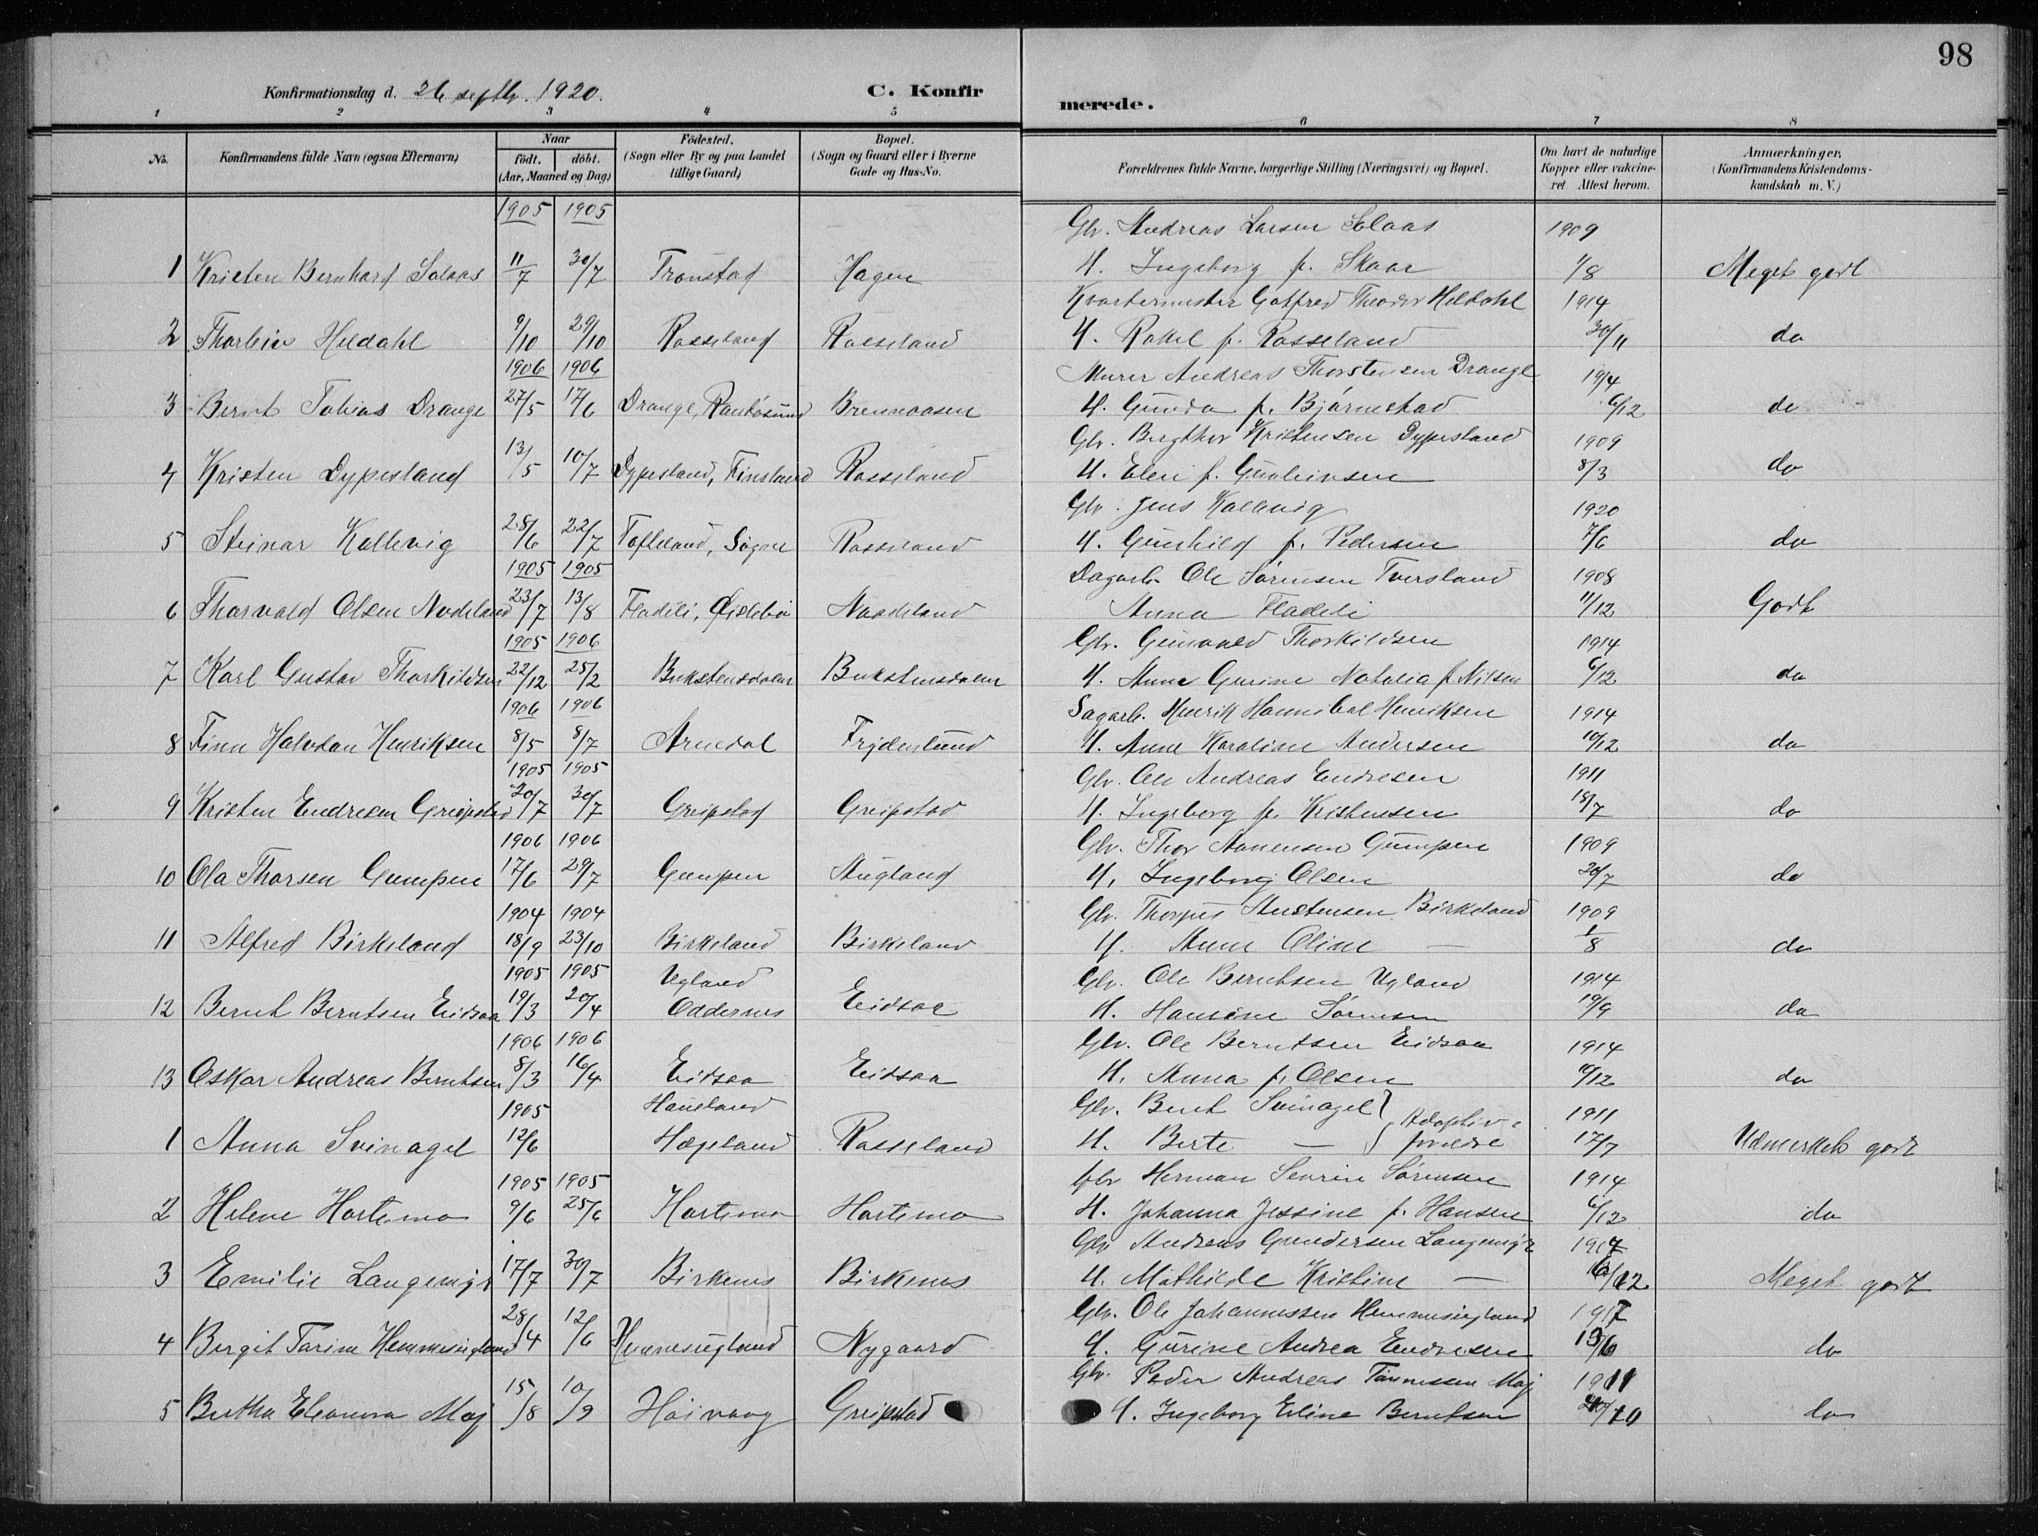 98
Konfirmationsdag d. 26 septbr. 1920.
C. Konfirmerede.
1 2 3 4 5 6 7 8
No. Konfirmandens fulde Navn (ogsaa Efternavn) Naar født. døbt. (Aar, Maaned og Dag) Fødested. (Sogn eller By og paa Landet tillige Gaard) Bopæl. (Sogn og Gaard eller i Byerne Gade og Hus-No. Forældrenes fulde Navne, borgerlige Stilling (Næringsvei) og Bopæl. Om havt de naturlige Kopper eller vakcineret Attest herom. Anmærkninger, (Konfirmandens Kristendomskundskab m. V.)
1905 1905 Gbr. Andreas Larsen Solaas 1909
1 Kristen Bernhard Solaas 11/7 30/7 Tronstad Hagen H. Ingeborg f. Skaar 1/8 Meget godt
Kvartermester Gotfred Theodor Heldahl 1914
2 Thorleiv Heldahl 9/10 29/10 Rosseland Rosseland H. Rakel f. Rosseland 30/11 do
1906 1906 Murer Andreas Thorstensen Drange 1914
3 Bernt Tobias Drange 27/5 17/6 Drange, Randøsund Brennaasen H. Gunda f. Bjørnestad 6/12 do
Gbr. Bergthor Kristensen Dypesland 1909
4 Kristen Dypesland 13/5 10/7 Dypesland, Finsland Rosseland H. Elen f. Gunleivsen 8/3 do
Gbr. Jens Kallevig 1920
5 Steinar Kallevig 28/6 22/7 Tofteland, Søgne Rosseland H. Gunhild f. Pedersen 7/6 do
1905 1905 Dagarb. Ole Sørensen Tversland 1908
6 Thorvald Olsen Nodeland 23/7 13/8 Fladeli, Øislebø Nodeland Anna Fladeli 11/12 Godt
1905 1906 Gbr. Gunvald Thorkildsen 1914
7 Karl Gustav Thorkildsen 22/12 25/2 Bukstensdalen Bukstensdalen H. Anne Gurine Natalia f. Nilsen 6/12 do
1906 1906 Sagarb. Henrik Hannibal Henriksen 1914
8 Finn Halvdan Henriksen 8/5 8/7 Arendal Frydenlund H. Anne Karoline Andersen 10/12 do
1905 1905 Gbr. Ole Andreas Endresen 1911
9 Kristen Endresen Greipstad 20/7 30/7 Greipstad Greipstad H. Ingeborg f. Kristensen 18/7 do
1906 1906 Gbr. Thor Aanensen Gumpen 1909
10 Ola Thorsen Gumpen 17/6 29/7 Gumpen Augland H. Ingeborg Olsen 30/7 do
1904 1904 Gbr. Thorjus Austensen Birkeland 1909
11 Alfred Birkeland 18/9 23/10 Birkeland Birkeland H. Anne Oline — 1/8 do
1905 1905 Ugland Gbr. Ole Berntsen Ugland 1914
12 Bernt Berntsen Eidsaa 19/3 20/4 Oddernes Eidsaa H. Hansine Sørensen 19/9 do
1906 1906 Gbr. Ole Berntsen Eidsaa 1914
13 Oskar Andreas Berntsen 8/3 16/4 Eidsaa Eidsaa H. Anna f. Olsen 6/12 do
1905 Haueland Gbr. Bent Svinagel } Adoptiv- 1911
1 Anna Svinagel 12/6 Hægeland Rosseland H. Berte — } forældre 17/7 Udmerket godt
1905 1905 Gbr Herman Severin Sørensen 1914
2 Helene Hortemo 9/6 25/6 Hortemo Hortemo H. Johanna Jessine f. Hansen 6/12 do
Gbr Andreas Gundersen Langemyr 1914
3 Emilie Langemyr 17/7 30/7 Birkenes Birkenes H. Mathilde Kristine — 6/12 Meget godt
Gbr. Ole Johannessen Hemmesugland 1917
4 Bergit Tarine Hemmesugland 28/4 12/6 Hemmesugland Nygaard H. Gurine Andrea Endresen 13/6 do
Gbr. Peder Andreas Tønnessen Moj 1911
5 Bertha Eleonora Moj 15/8 10/9 Höivaag Greipstad H. Ingeborg Eline Berntsen 20/10 do